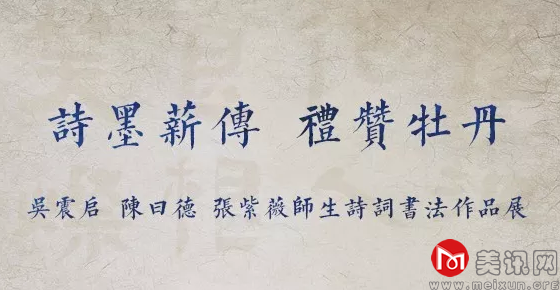 詩墨薪傳 禮贊牡丹
吳震启 陳曰德 張紫薇師生詩詞書法作品展
美讯网
www.meixun.org